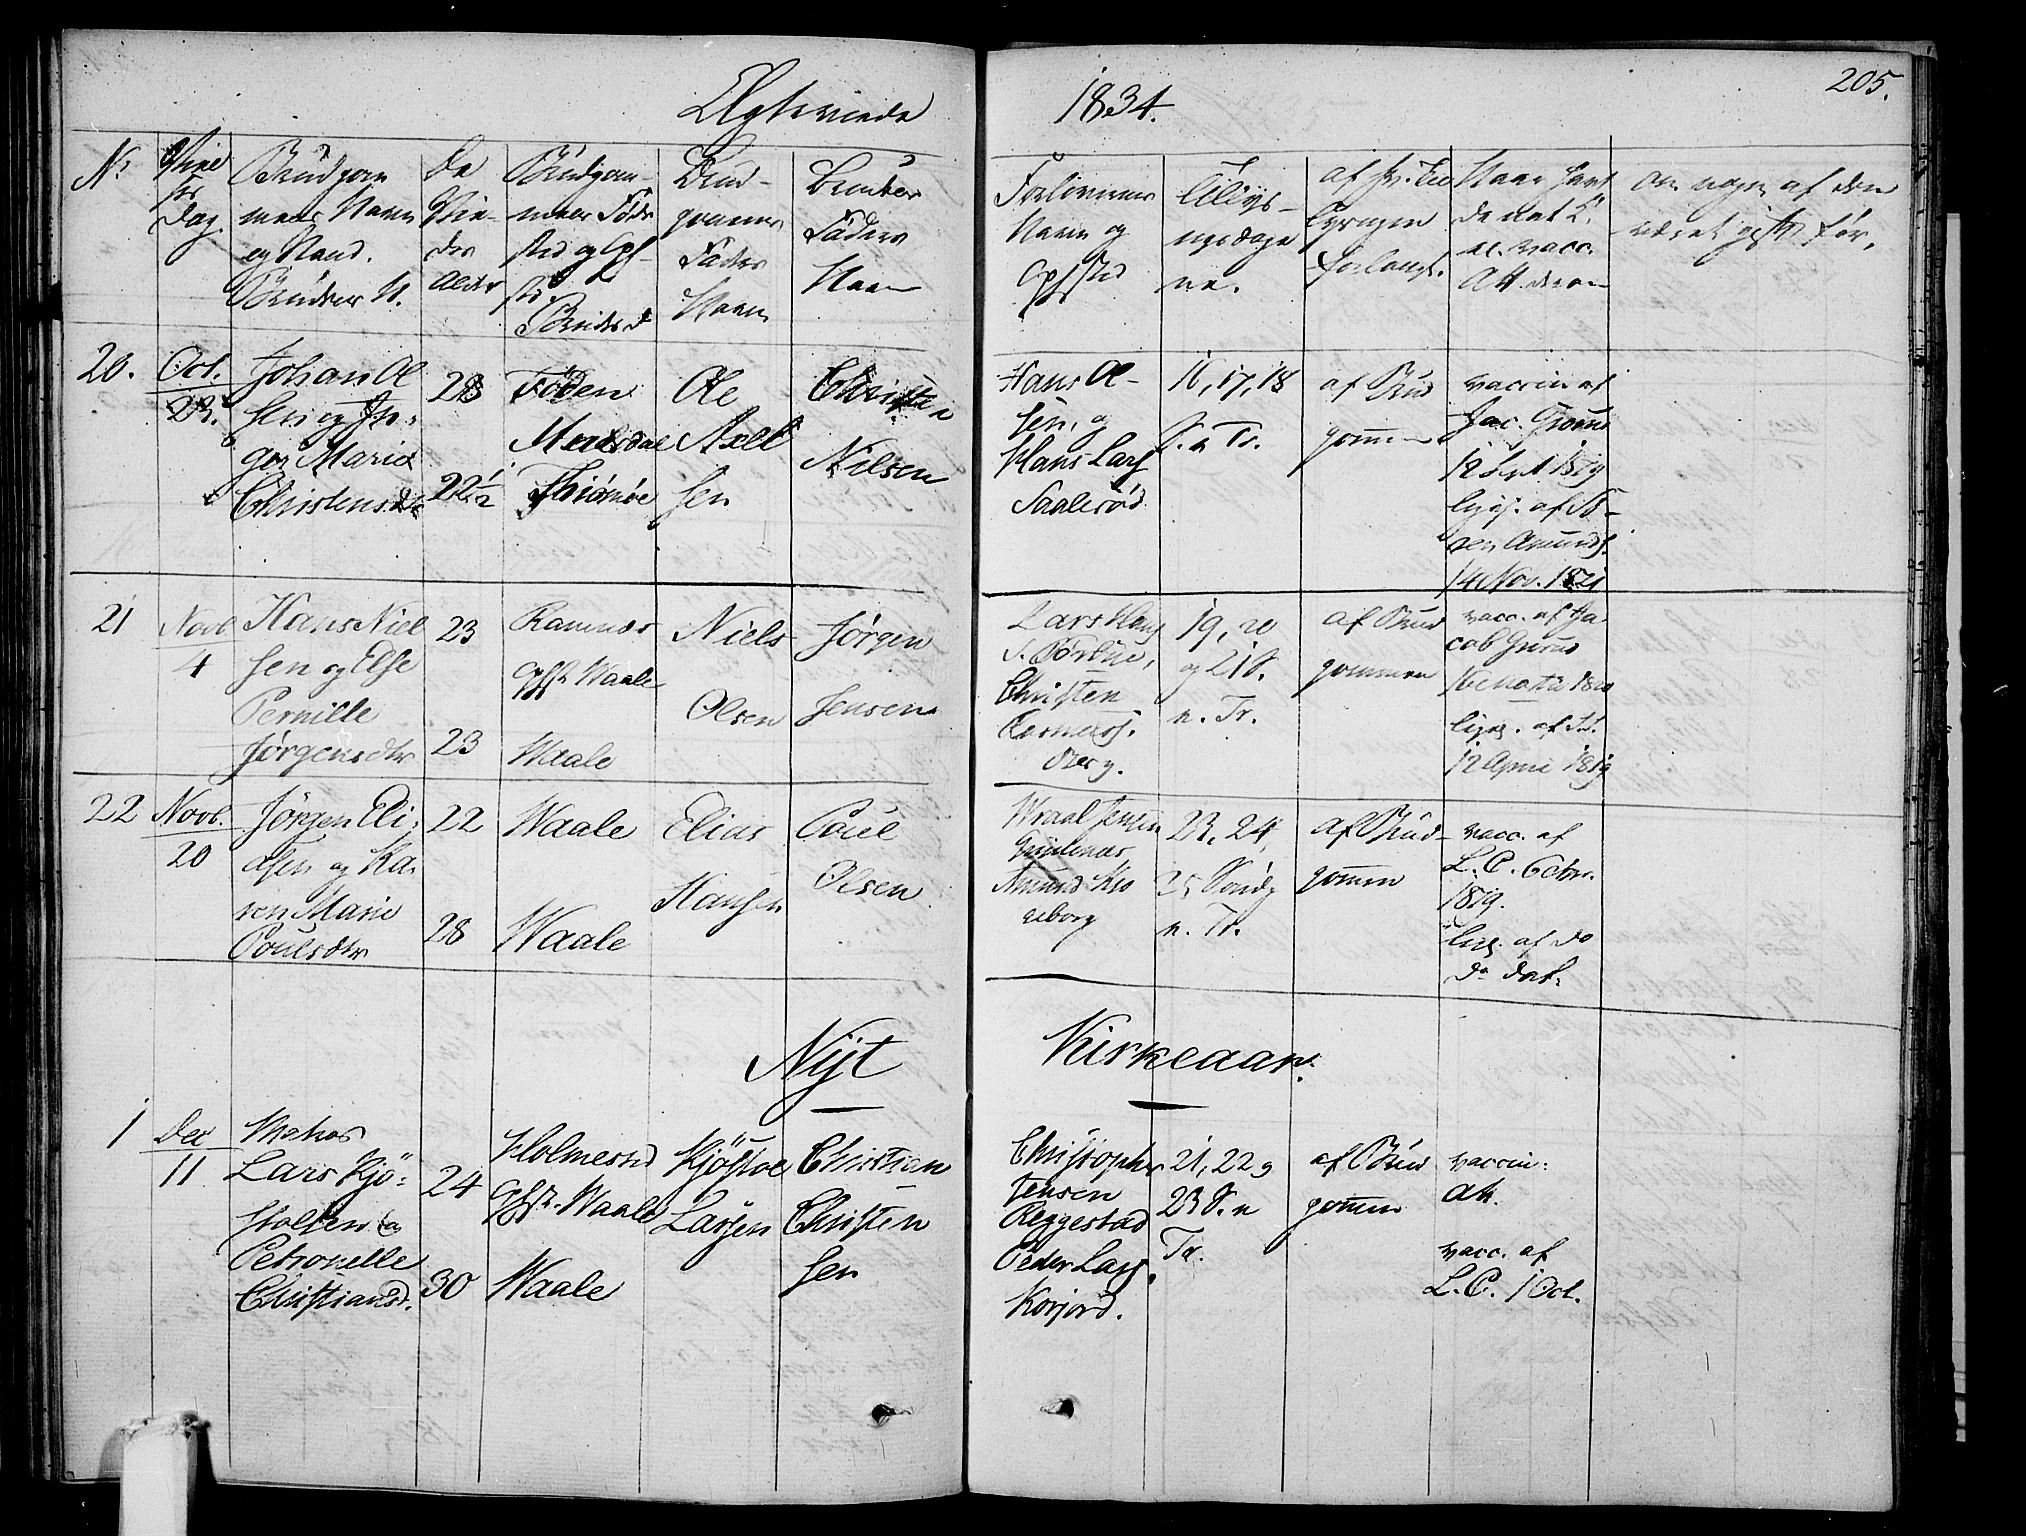 Ægteviede
1834.
205.
No
Vielses
Dag.
Brudgom
mens Navn
og Stand.
Brudens N.
De
Vie-
des
Alder
Brudgom-
mens Føde
sted og Opf
st.
Brudes d
Brud-
gommens
Faders
Navn
Brudens
Faders
Navn
Forlovernes
Navn og
Opfsted
Tillys-
ningsdage
ne.
af hv. Til
lysningen
forlangt.
Naar havt
de nat. K.
el. vacc.
Att. derom
Om nogen af dem
været gift før.
20.
Oct.
23.
Johan Ol
sen og In-
ger Maria
Christensdr
28
22½
Føden
Thiømøe
Ole
Axel
sen
Christen
Nilsen
Hans Ol-
sen, og
Hans Lars
16, 17, 18
S. n Tr.
af Brud
gommen
vaccin af
Jac. Grønn
12 Sept 1819
lig. af
Amunds.
14 Nov. 1821
21
Novb
4
Hans Niel
sen og Else
Pernille
Jørgensdtr
23
23
Ramnæs
Opfst. Waale
Waale
Niels
Olsen
Jørgen
Jensen
Lars Hans
Christen
berg.
19, 20
og 21 S.
n. Tr.
af Brud
gommen
vacc. af Ja
cob
lig. af
12 April 1819
22
Novb.
20
Jørgen Eli
asen og Ka-
ren Marie
Poulsdtr
22
28
Waale
Waale
Elias
Hansen
Poul
Olsen
Wraal Jensen
Amund
23, 24,
25 Sønd.
n. Tr.
af Brud-
gommen
vacc. af
L. C. 6 Octbr.
1819.
lig. af do
do dat.
Nyt
Kirkeaar.
1
Dec
11
Matros
Lars Kjö-
stolsen og
Petronelle
Christiansd.
24
30
Holmestrd
Opfst. Waale
Waale
Kjöstol
Larsen
Christian
Christen
sen
Christopher
Jensen
Reggestad
Peder Lars.
Korjord.
21, 22 og
23 S. n
Tr.
af Brud
gommen
vaccin:
Att.
vacc. af
L. C. 1 Oct.